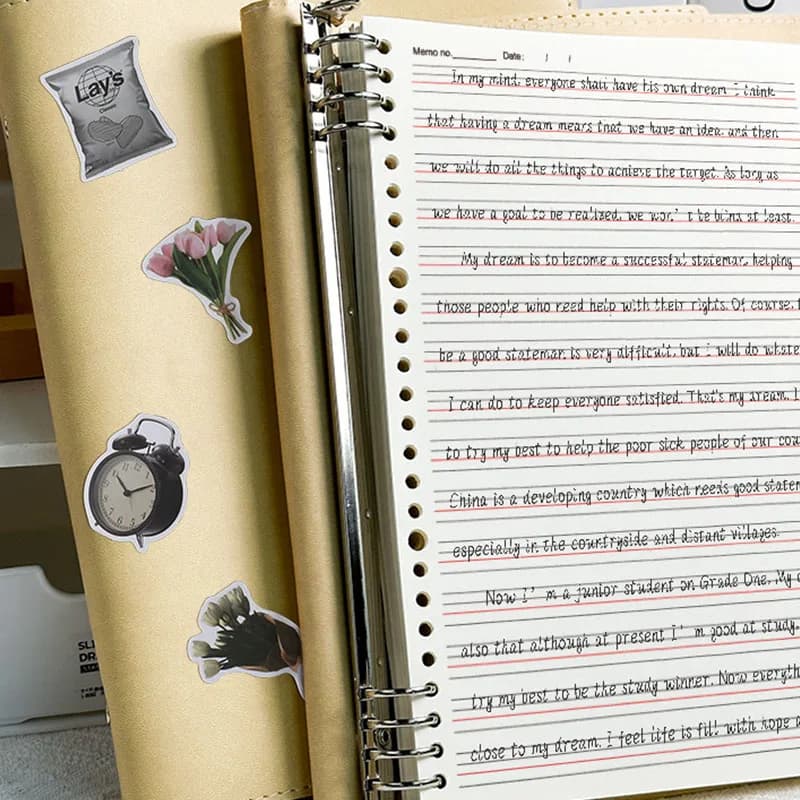 Lay's
Classic
Memo no. Date: / /
In my mind, everyone shall have his own dream I think
that having a dream means that we have an idea. and then
we will do all the things to achieve the target. As long as
we have a goal to be realized, we won't be blind at least.
My dream is to become a successful stateman, helping
those people who need help with their rights. Of course,
be a good stateman is very difficult, but I will do
I can do to keep everyone satisfied. That's my dream. I
to try my best to help the poor sick people of our
China is a developing country which needs good
especially in the countryside and distant villages.
Now I'm a junior student on Grade One. My
also that although at present I'm good at study.
try my best to be the study winner. Now
close to my dream. I feel life is full with hope